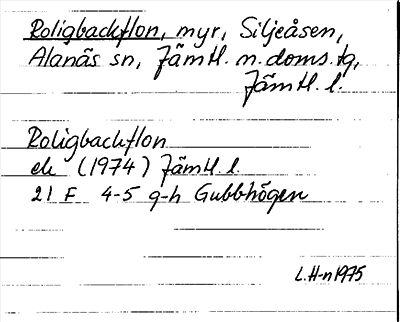 Roligbackflon, myr, Siljeåsen,
Alanäs sn, Jämtl. n. doms. tg,
Jämtl. l.
Roligbackflon
ek (1974) Jämtl. l.
21 F 4-5 g-h Gubbhögen
L.H-n 1975